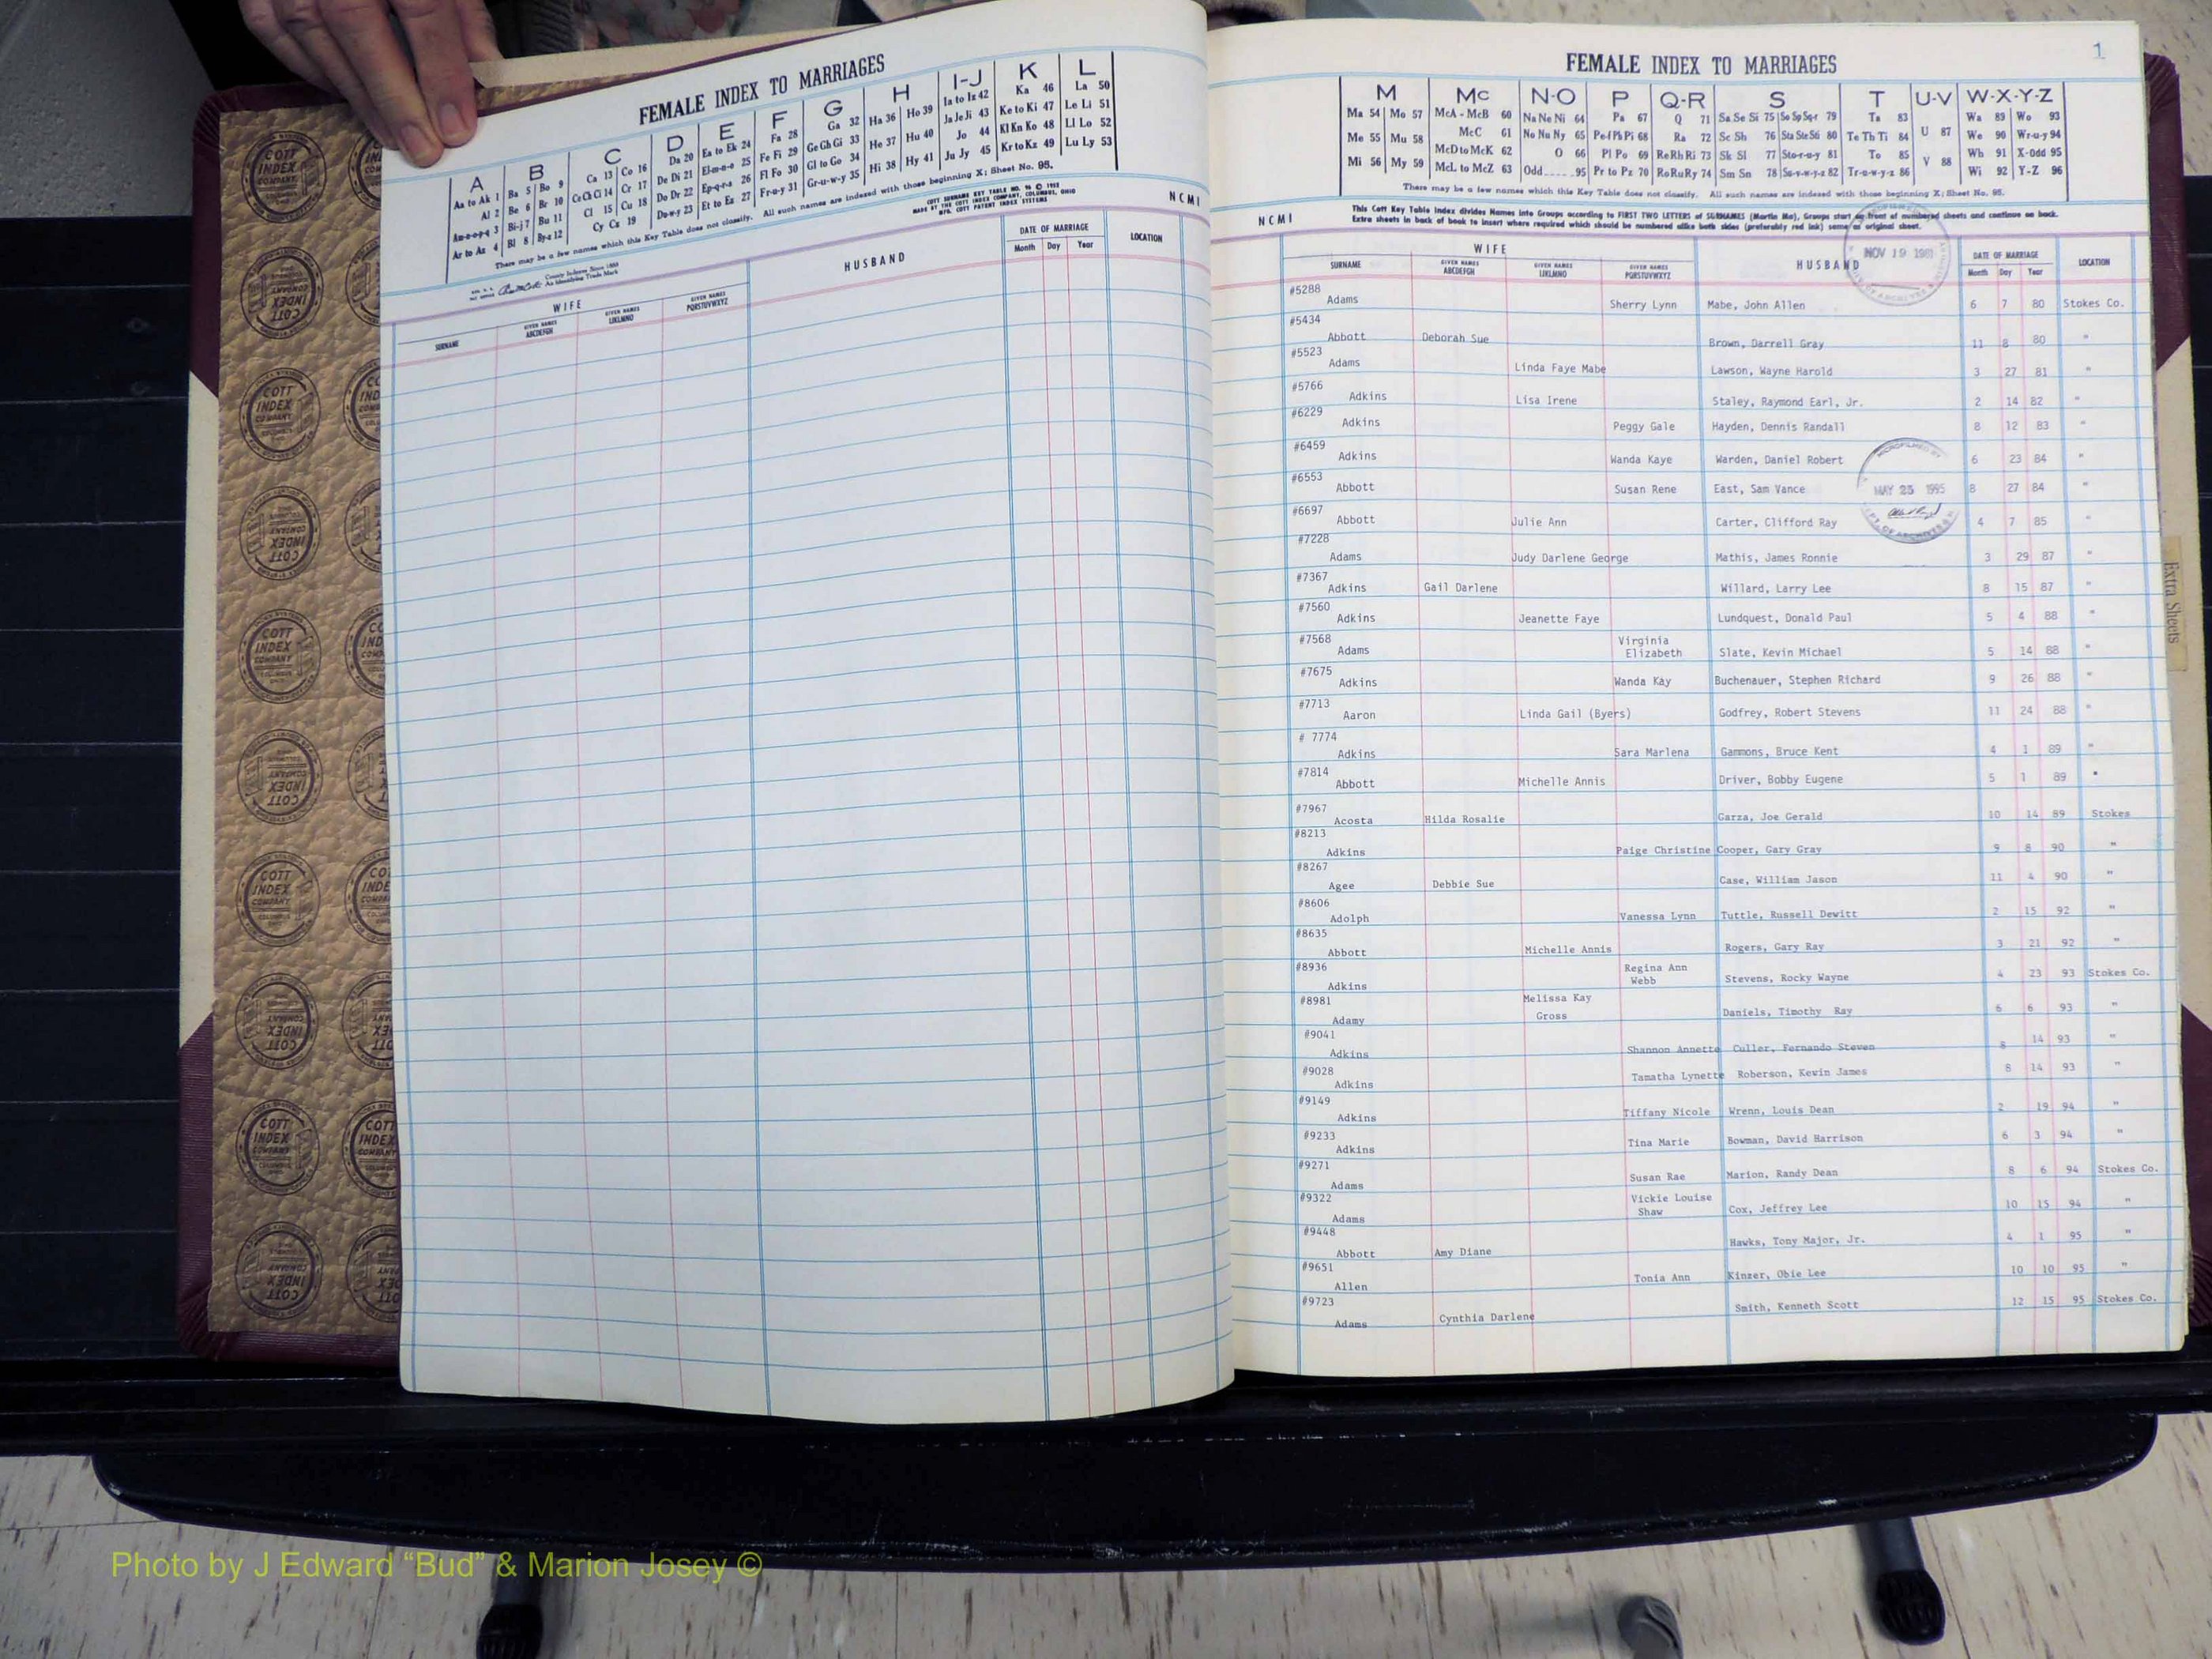 FEMALE INDEX TO MARRIAGES
A B C D E F G H I-J K L
Aa to Ak 1 Ba 5 Bo 9 Ca 13 Co 16 Da 20 Ea to Ek 24 Fa 28 Ga 32 Ha 36 Ho 39 Ia to Iz 42 Ka 46 La 50
Al 2 Be 6 Br 10 Ce Ch Ci 14 Cr 17 De Di 21 El-m-n-o 25 Fe Fi 29 Ge Gh Gi 33 He 37 Hu 40 Ja Je Ji 43 Ke to Ki 47 Le Li 51
Am-n-o-p-q 3 Bi-j 7 Bu 11 Cl 15 Cu 18 Do Dr 22 Ep-q-r-s 26 Fl Fo 30 Gl to Go 34 Hi 38 Hy 41 Jo 44 Kl Kn Ko 48 Ll Lo 52
Ar to Az 4 Bl 8 By-z 12 Cy Cz 19 Du-w-y 23 Et to Ez 27 Fr-u-y 31 Gr-u-w-y 35 Ju Jy 45 Kr to Kz 49 Lu Ly 53
There may be a few names which this Key Table does not classify. All such names are indexed with those beginning X; Sheet No. 95.
County Indexes Since 1888
An Identifying Trade Mark
COTT SURNAME KEY TABLE NO. 96 © 1952
MADE BY THE COTT INDEX COMPANY, COLUMBUS, OHIO
MFG. COTT PATENT INDEX SYSTEMS
NCMI
WIFE HUSBAND DATE OF MARRIAGE LOCATION
SURNAME GIVEN NAMES ABCDEFGH GIVEN NAMES IJKLMNO GIVEN NAMES PQRSTUVWXYZ Month Day Year
1
FEMALE INDEX TO MARRIAGES
M Mc N-O P Q-R S T U-V W-X-Y-Z
Ma 54 Mo 57 McA - McB 60 Na Ne Ni 64 Pa 67 Q 71 Sa Se Si 75 So Sp Sq-r 79 Ta 83 U 87 Wa 89 Wo 93
Me 55 Mu 58 McC 61 No Nu Ny 65 Pe-f Ph Pi 68 Ra 72 Sc Sh 76 Sta Ste Sti 80 Te Th Ti 84 V 88 We 90 Wr-u-y 94
Mi 56 My 59 McD to McK 62 O 66 Pl Po 69 Re Rh Ri 73 Sk Sl 77 Sto-r-u-y 81 To 85 Wh 91 X-Odd 95
McL to McZ 63 Odd......95 Pr to Pz 70 Ro Ru Ry 74 Sm Sn 78 Su-v-w-y-z 82 Tr-u-w-y-z 86 Wi 92 Y-Z 96
There may be a few names which this Key Table does not classify. All such names are indexed with those beginning X; Sheet No. 95.
NCMI
This Cott Key Table Index divides Names into Groups according to FIRST TWO LETTERS of SURNAMES (Martin Ma), Groups start on front of numbered sheets and continue on back.
Extra sheets in back of book to insert where required which should be numbered alike both sides (preferably red ink) same as original sheet.
NOV 19 1981
WIFE HUSBAND DATE OF MARRIAGE LOCATION
SURNAME GIVEN NAMES ABCDEFGH GIVEN NAMES IJKLMNO GIVEN NAMES PQRSTUVWXYZ Month Day Year
#5288
Adams Sherry Lynn Mabe, John Allen 6 7 80 Stokes Co.
#5434
Abbott Deborah Sue Brown, Darrell Gray 11 8 80 "
#5523
Adams Linda Faye Mabe Lawson, Wayne Harold 3 27 81 "
#5766
Adkins Lisa Irene Staley, Raymond Earl, Jr. 2 14 82 "
#6229
Adkins Peggy Gale Hayden, Dennis Randall 8 12 83 "
#6459
Adkins Wanda Kaye Warden, Daniel Robert 6 23 84 "
#6553
Abbott Susan Rene East, Sam Vance 8 27 84 "
MICROFILMED BY
MAY 25 1995
#6697
Abbott Julie Ann Carter, Clifford Ray 4 7 85 "
#7228
Adams Judy Darlene George Mathis, James Ronnie 3 29 87 "
#7367
Adkins Gail Darlene Willard, Larry Lee 8 15 87 "
#7560
Adkins Jeanette Faye Lundquest, Donald Paul 5 4 88 "
#7568
Adams Virginia Elizabeth Slate, Kevin Michael 5 14 88 "
#7675
Adkins Wanda Kay Buchenauer, Stephen Richard 9 26 88 "
#7713
Aaron Linda Gail (Byers) Godfrey, Robert Stevens 11 24 88 "
# 7774
Adkins Sara Marlena Gammons, Bruce Kent 4 1 89 "
#7814
Abbott Michelle Annis Driver, Bobby Eugene 5 1 89 "
#7967
Acosta Hilda Rosalie Garza, Joe Gerald 10 14 89 Stokes
#8213
Adkins Paige Christine Cooper, Gary Gray 9 8 90 "
#8267
Agee Debbie Sue Case, William Jason 11 4 90 "
#8606
Adolph Vanessa Lynn Tuttle, Russell Dewitt 2 15 92 "
#8635
Abbott Michelle Annis Rogers, Gary Ray 3 21 92 "
#8936
Adkins Regina Ann Webb Stevens, Rocky Wayne 4 23 93 Stokes Co.
#8981
Adamy Melissa Kay Gross Daniels, Timothy Ray 6 6 93 "
#9041
Adkins Shannon Annette Culler, Fernando Steven 8 14 93 "
#9028
Adkins Tamatha Lynette Roberson, Kevin James 8 14 93 "
#9149
Adkins Tiffany Nicole Wrenn, Louis Dean 2 19 94 "
#9233
Adkins Tina Marie Bowman, David Harrison 6 3 94 "
#9271
Adams Susan Rae Marion, Randy Dean 8 6 94 Stokes Co.
#9322
Adams Vickie Louise Shaw Cox, Jeffrey Lee 10 15 94 "
#9448
Abbott Amy Diane Hawks, Tony Major, Jr. 4 1 95 "
#9651
Allen Tonia Ann Kinzer, Obie Lee 10 10 95 "
#9723
Adams Cynthia Darlene Smith, Kenneth Scott 12 15 95 Stokes Co.
Extra Sheets
COTT INDEX COMPANY
Photo by J Edward “Bud” & Marion Josey ©